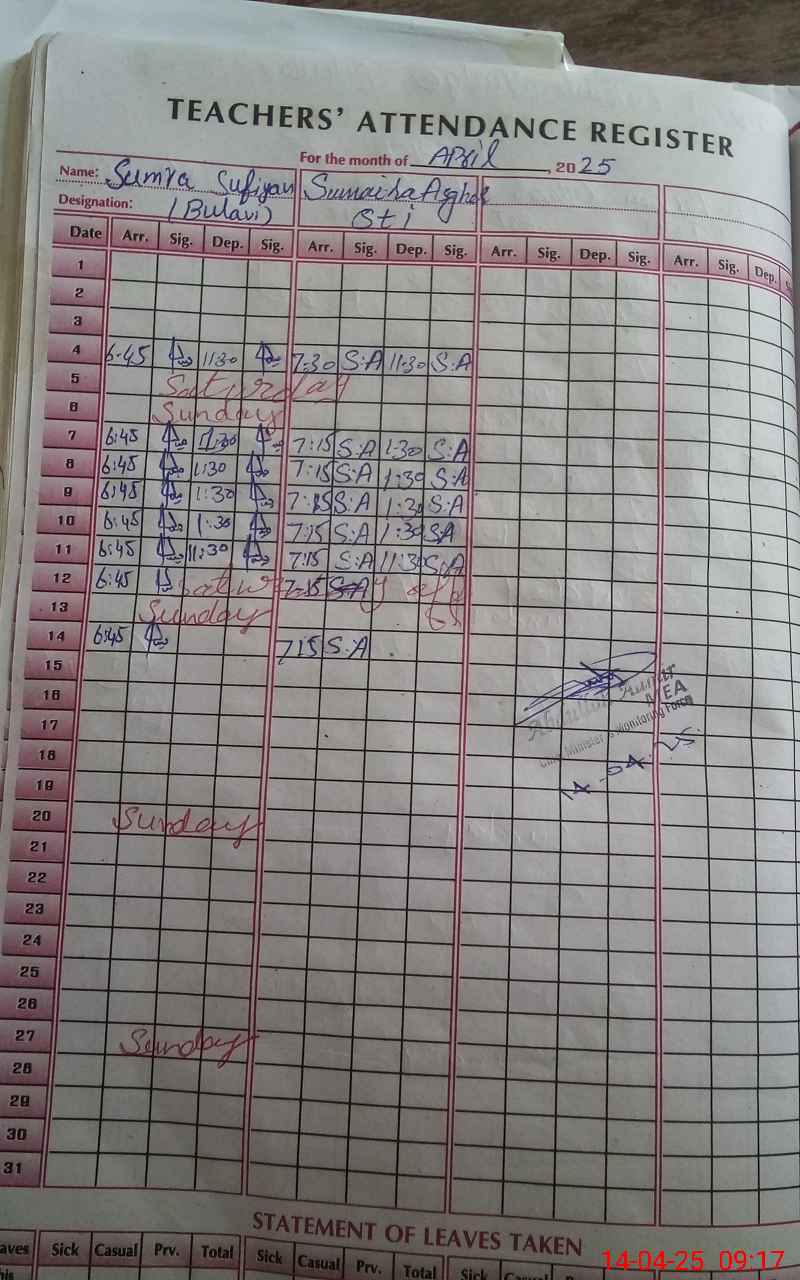 TEACHERS' ATTENDANCE REGISTER
For the month of April, 2025
Name: Sumra Sufiyan Sumaira Asghar
Designation: (Bulavi) Sti
Date Arr. Sig. Dep. Sig. Arr. Sig. Dep. Sig. Arr. Sig. Dep. Sig. Arr. Sig. Dep.
1
2
3
4 6:45 11:30 7:30 S:A 11:30 S:A
5 Saturday
6 Sunday
7 6:45 1:30 7:15 S:A 1:30 S:A
8 6:45 1:30 7:15 S:A 1:30 S:A
9 6:45 1:30 7:15 S:A 1:30 S:A
10 6:45 1:30 7:15 S:A 1:30 SA
11 6:45 11:30 7:15 S:A 11:30 S:A
12 6:45 7:15 S:A off
13 Sunday
14 6:45 7:15 S:A
15
16 MEA
17 Chief Minister's Monitoring Force
18 14-04-25
19
20 Sunday
21
22
23
24
25
26
27 Sunday
28
29
30
31
STATEMENT OF LEAVES TAKEN
aves Sick Casual Prv. Total Sick Casual Prv. Total Sick Casual
his
14-04-25 09:17